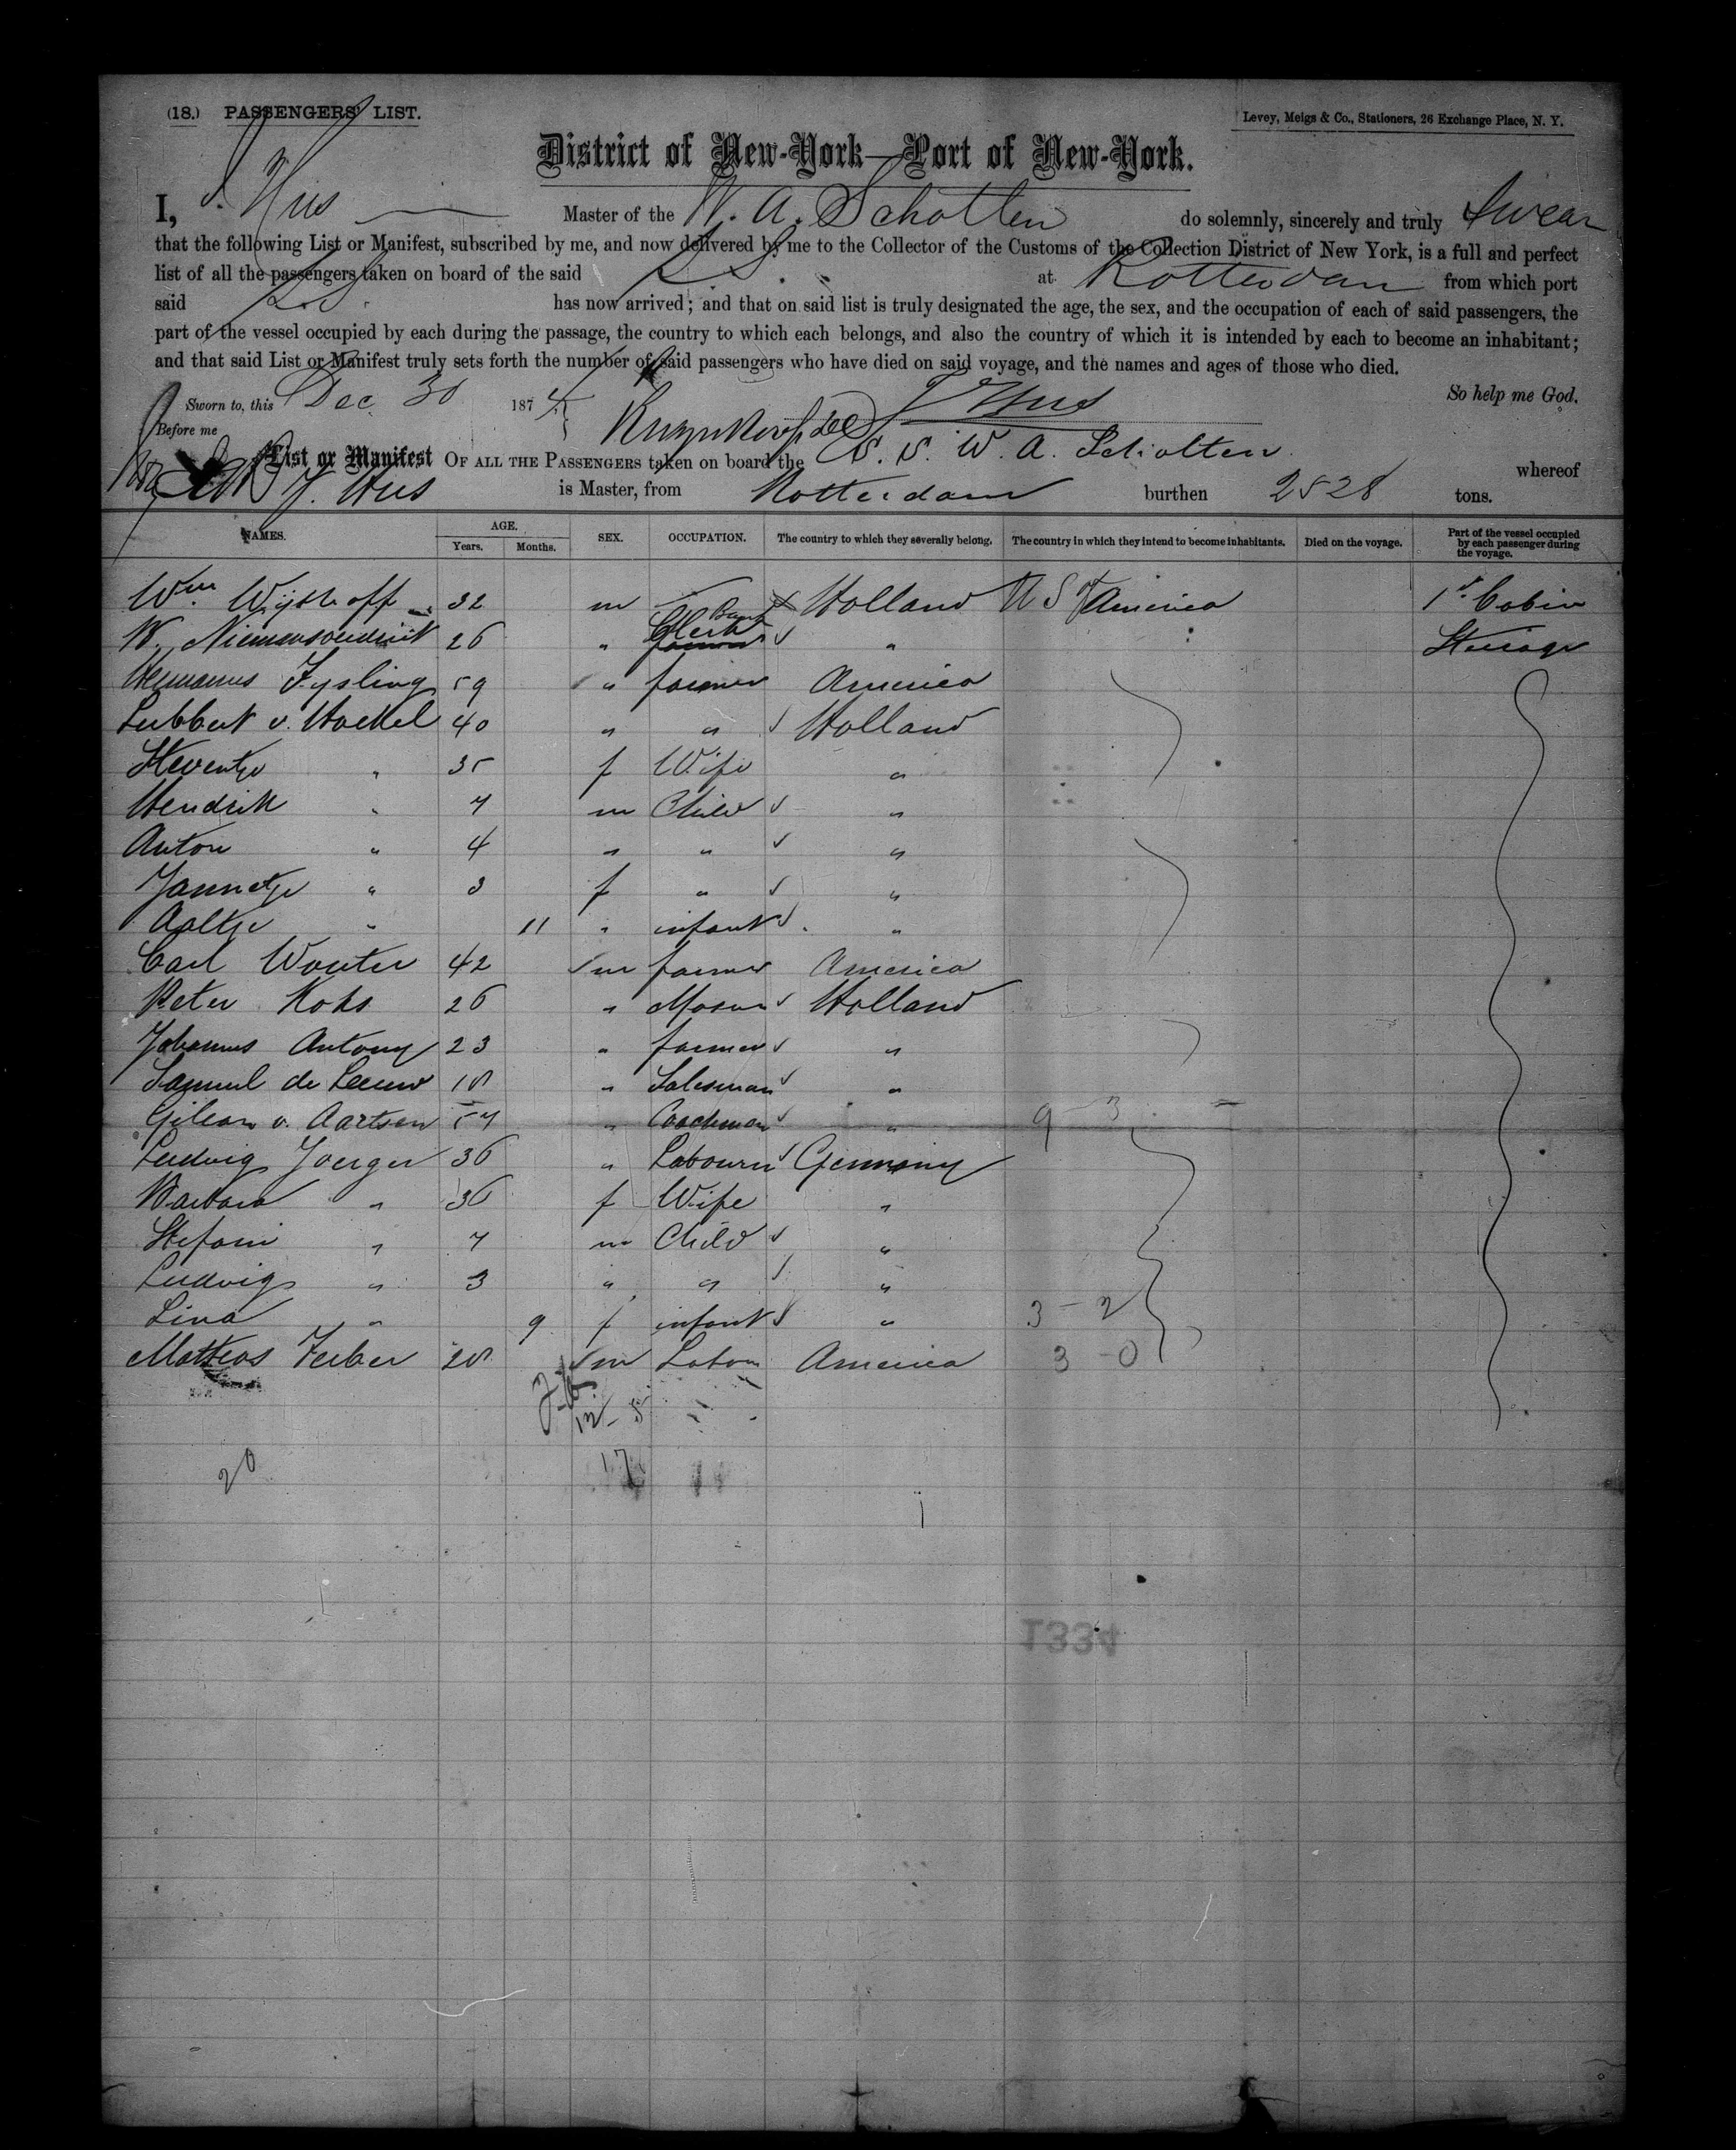 (18.) PASSENGERS' LIST.
Levey, Meigs & Co., Stationers, 26 Exchange Place, N. Y.
District of New-York—Port of New-York.
I, J. Hus Master of the W. A. Scholten do solemnly, sincerely and truly Swear
that the following List or Manifest, subscribed by me, and now delivered by me to the Collector of the Customs of the Collection District of New York, is a full and perfect
list of all the passengers taken on board of the said S.S. at Rotterdam from which port
said S.S. has now arrived; and that on said list is truly designated the age, the sex, and the occupation of each of said passengers, the
part of the vessel occupied by each during the passage, the country to which each belongs, and also the country of which it is intended by each to become an inhabitant;
and that said List or Manifest truly sets forth the number of said passengers who have died on said voyage, and the names and ages of those who died.
Sworn to, this Dec 30 1874 J Hus So help me God.
Before me
List or Manifest OF ALL THE PASSENGERS taken on board the S. S. W. A. Scholten whereof
J. Hus is Master, from Rotterdam burthen 2528 tons.
NAMES. AGE. Years. Months. SEX. OCCUPATION. The country to which they severally belong. The country in which they intend to become inhabitants. Died on the voyage. Part of the vessel occupied by each passenger during the voyage.
Wm. Wijshoff 32 m Holland U S of America 1st Cabin
W. 26 " Clerk " " Steerage
Hermanus Fysling 59 " farmer America
Lubbert v. Hoekel 40 " " Holland
Steventje " 35 f Wife "
Hendrik " 7 m Child "
Anton " 4 " " "
Jannetje " 3 f " "
Aaltje " 11 " infant "
Carl Wouter 42 m farmer America
Peter Koks 26 " Mason Holland
Johannes Antony 23 " farmer "
Samuel de Leeuw 18 " Salesman "
Gilean v. Aartsen 57 " Coachman " 9 - 3
Ludwig Joerger 36 " Labourer Germany
Barbara " 36 f Wife "
Stefani " 7 m Child "
Ludwig " 3 " " "
Lina " 9 f infant " 3 - 2
Matteas Ferber 28 m Labour America 3 - 0
12 - 5
17
20
1334